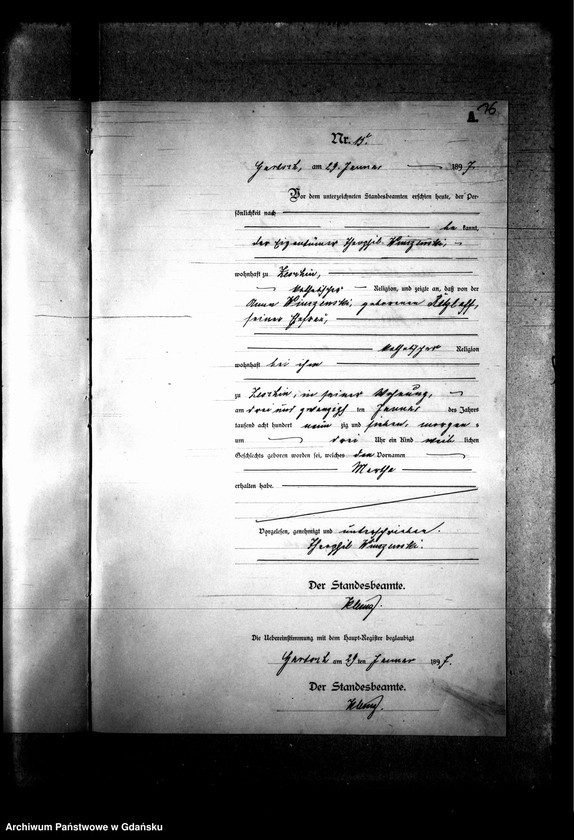 76
A
Nr. 15.
am 29. Januar 1897.
Vor dem unterzeichneten Standesbeamten erschien heute, der Per-
sönlichkeit nach
be kannt,
der Eigenthümer Theophil Winczewski,
wohnhaft zu
katholischer Religion, und zeigte an, daß von der
Anna Winczewski, geborenen
seiner Ehefrau,
katholischer Religion
wohnhaft bei ihm
zu in seiner Wohnung,
am drei und zwanzigsten Januar des Jahres
tausend acht hundert neun zig und sieben, morgens
um drei Uhr ein Kind weib lichen
Geschlechts geboren worden sei, welches den Vornamen
Martha
erhalten habe.
Vorgelesen, genehmigt und unterschrieben.
Theophil Winczewski.
Der Standesbeamte.
Die Uebereinstimmung mit dem Haupt-Register beglaubigt
am 29 ten Januar 1897.
Der Standesbeamte.
Archiwum Państwowe w Gdańsku